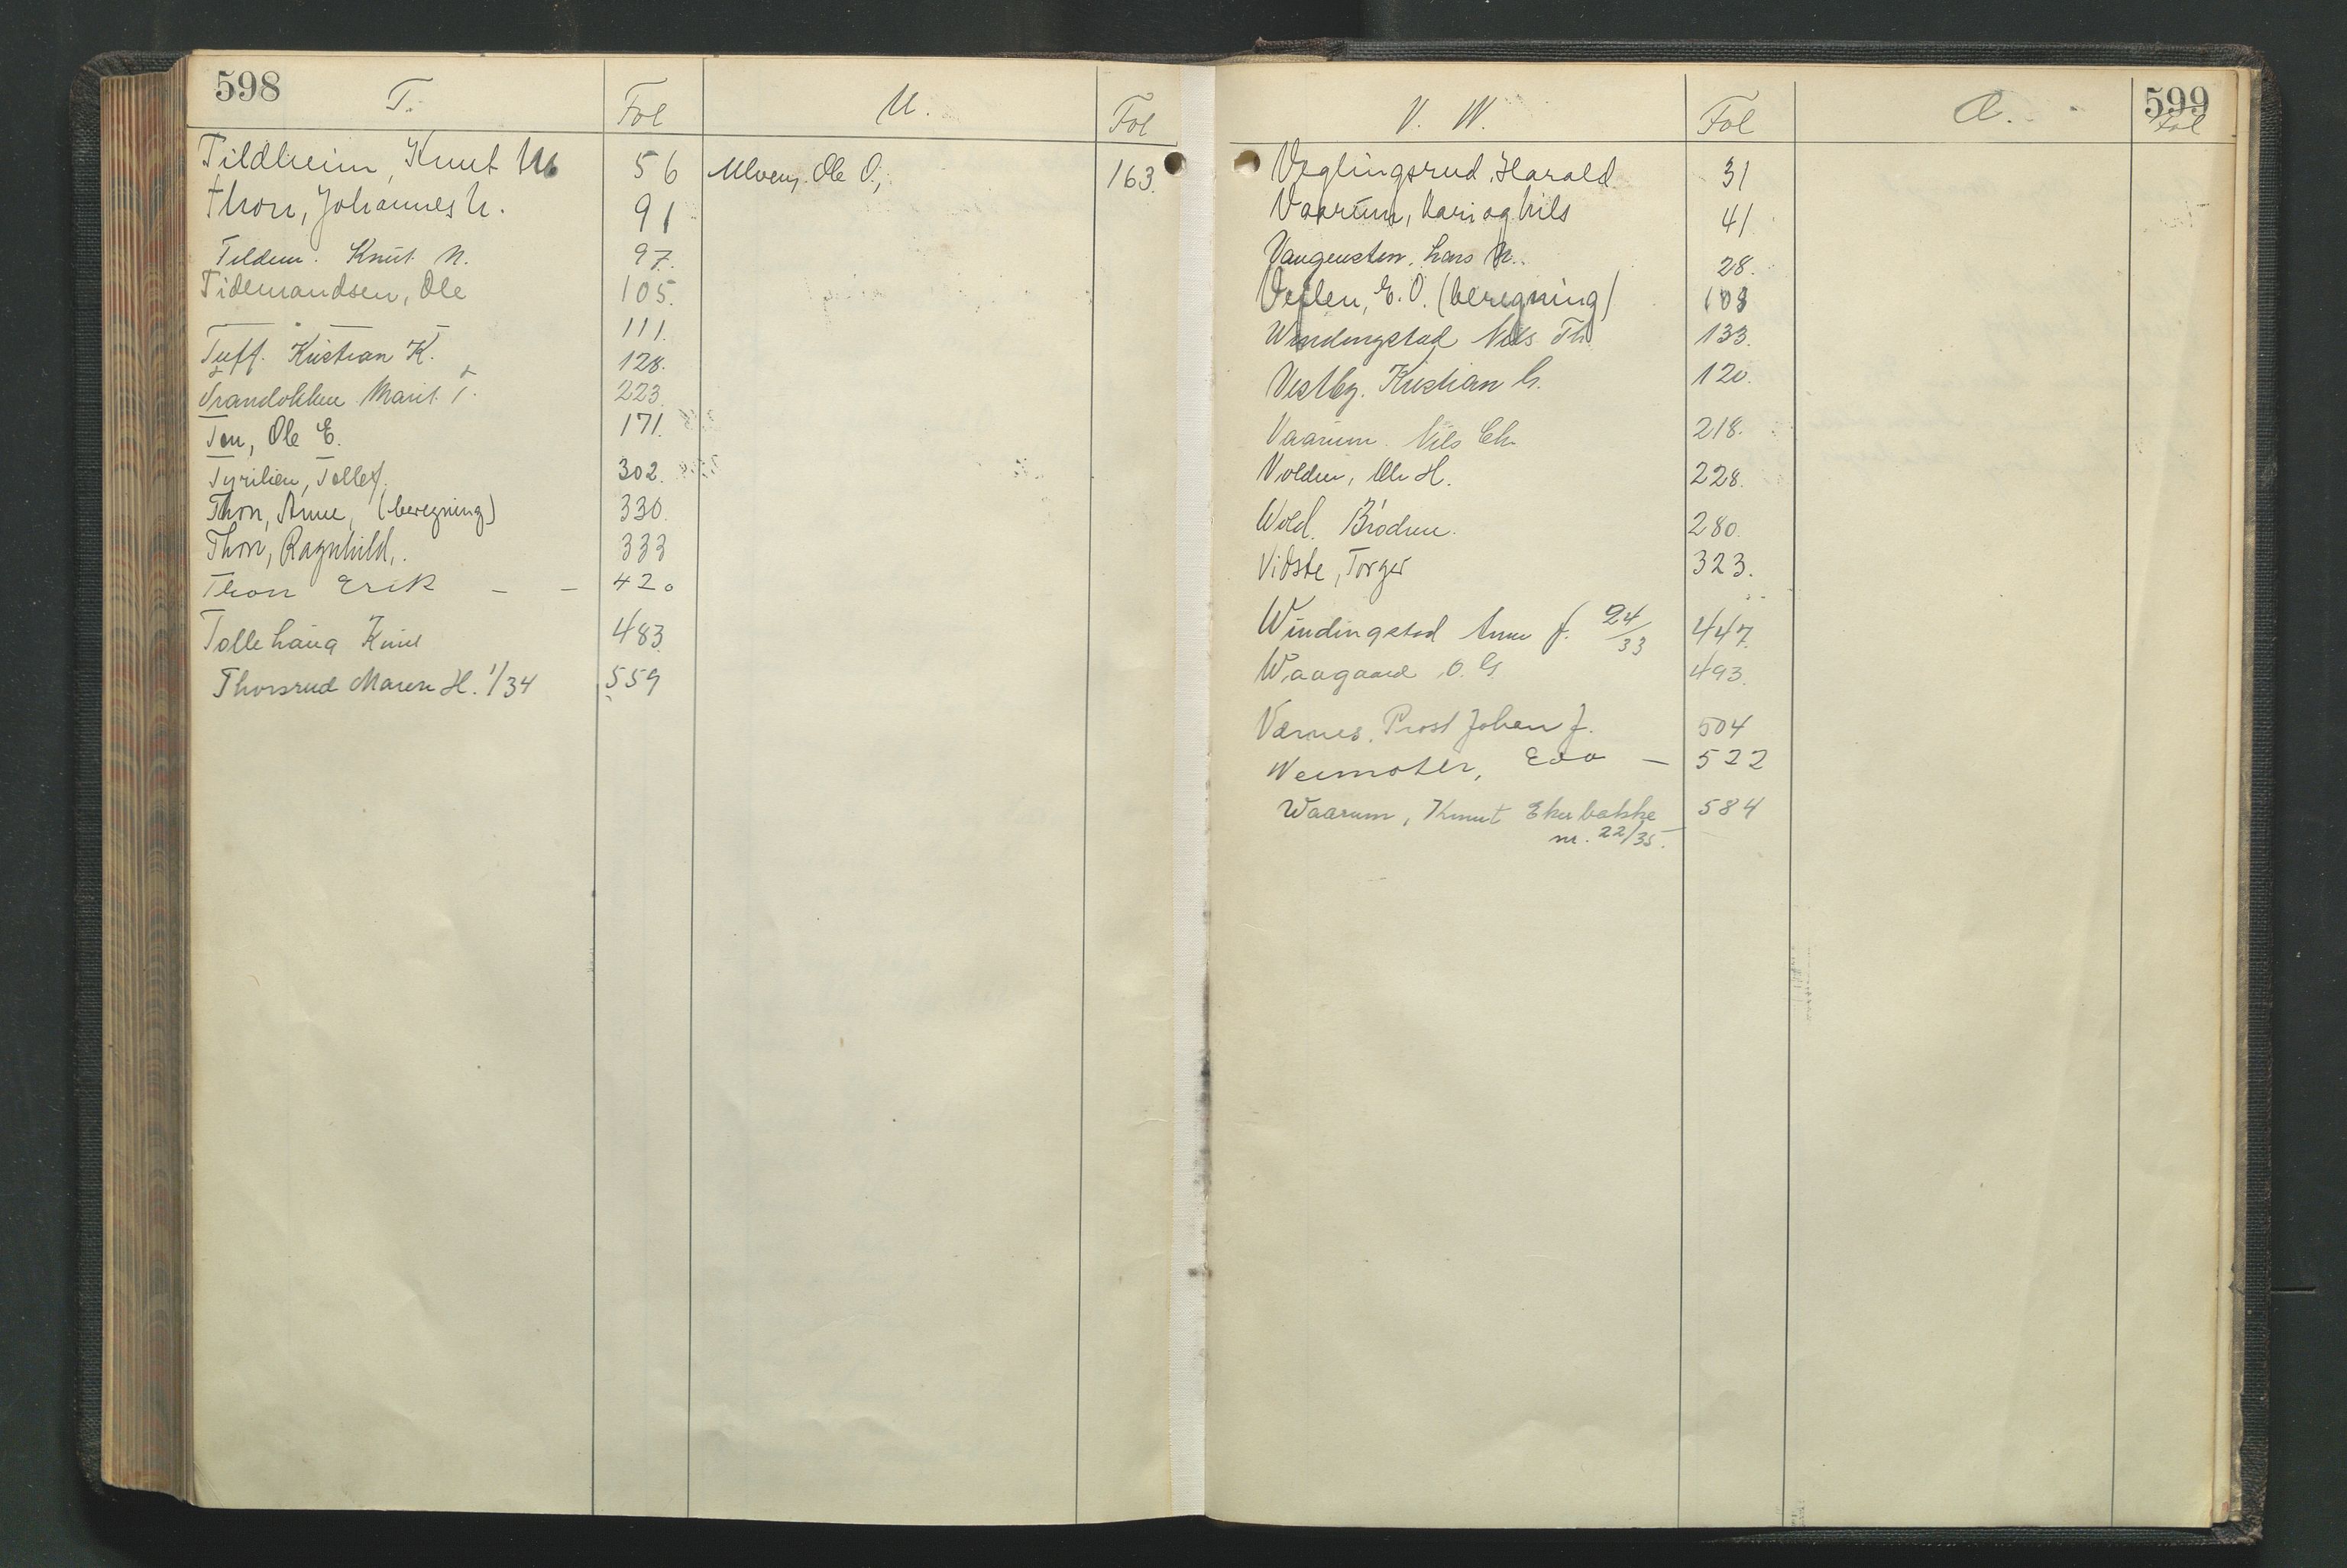 598
T. Fol U. Fol
Tildheim, Knut M 56
Thon, Johannes N. 91
Tildem. Knut N. 97.
Tidemandsen, Ole 105.
— — — 111.
Tuff. Kristian K. 128.
Trandokken Marit T. 223.
Ton, Ole E. 171.
Tyrilien, Tollef. 302.
Thon, Anne, (beregning) 330.
Thon, Ragnhild, 333
Thon Erik — — 420
Tollehaug Knut 483.
Thorsrud Maren H. 1/34 559
Ulven, Ole O., 163.
599
V. W. Fol Ø. Fol
Veglingsrud, Harald 31
Vaarum, Kari og Nils 41
Vangensten, Lars N. 28.
Veslen, E. O. (beregning) 103
Windingstad Nils Th 133.
Vestby. Kristian G. 120.
Vaarum Nils Chr. 218.
Volden, Ole H. 228.
Wold. Brødrene. 280.
Vidste, Torger 323.
Windingstad Anne J. 24/33 447.
Waagaard O. G. 493.
Værnes, Prost Johan J. 504
Weimoten, — 522
Waarum, Knut Ekerbakke 584
nr. 22/35.